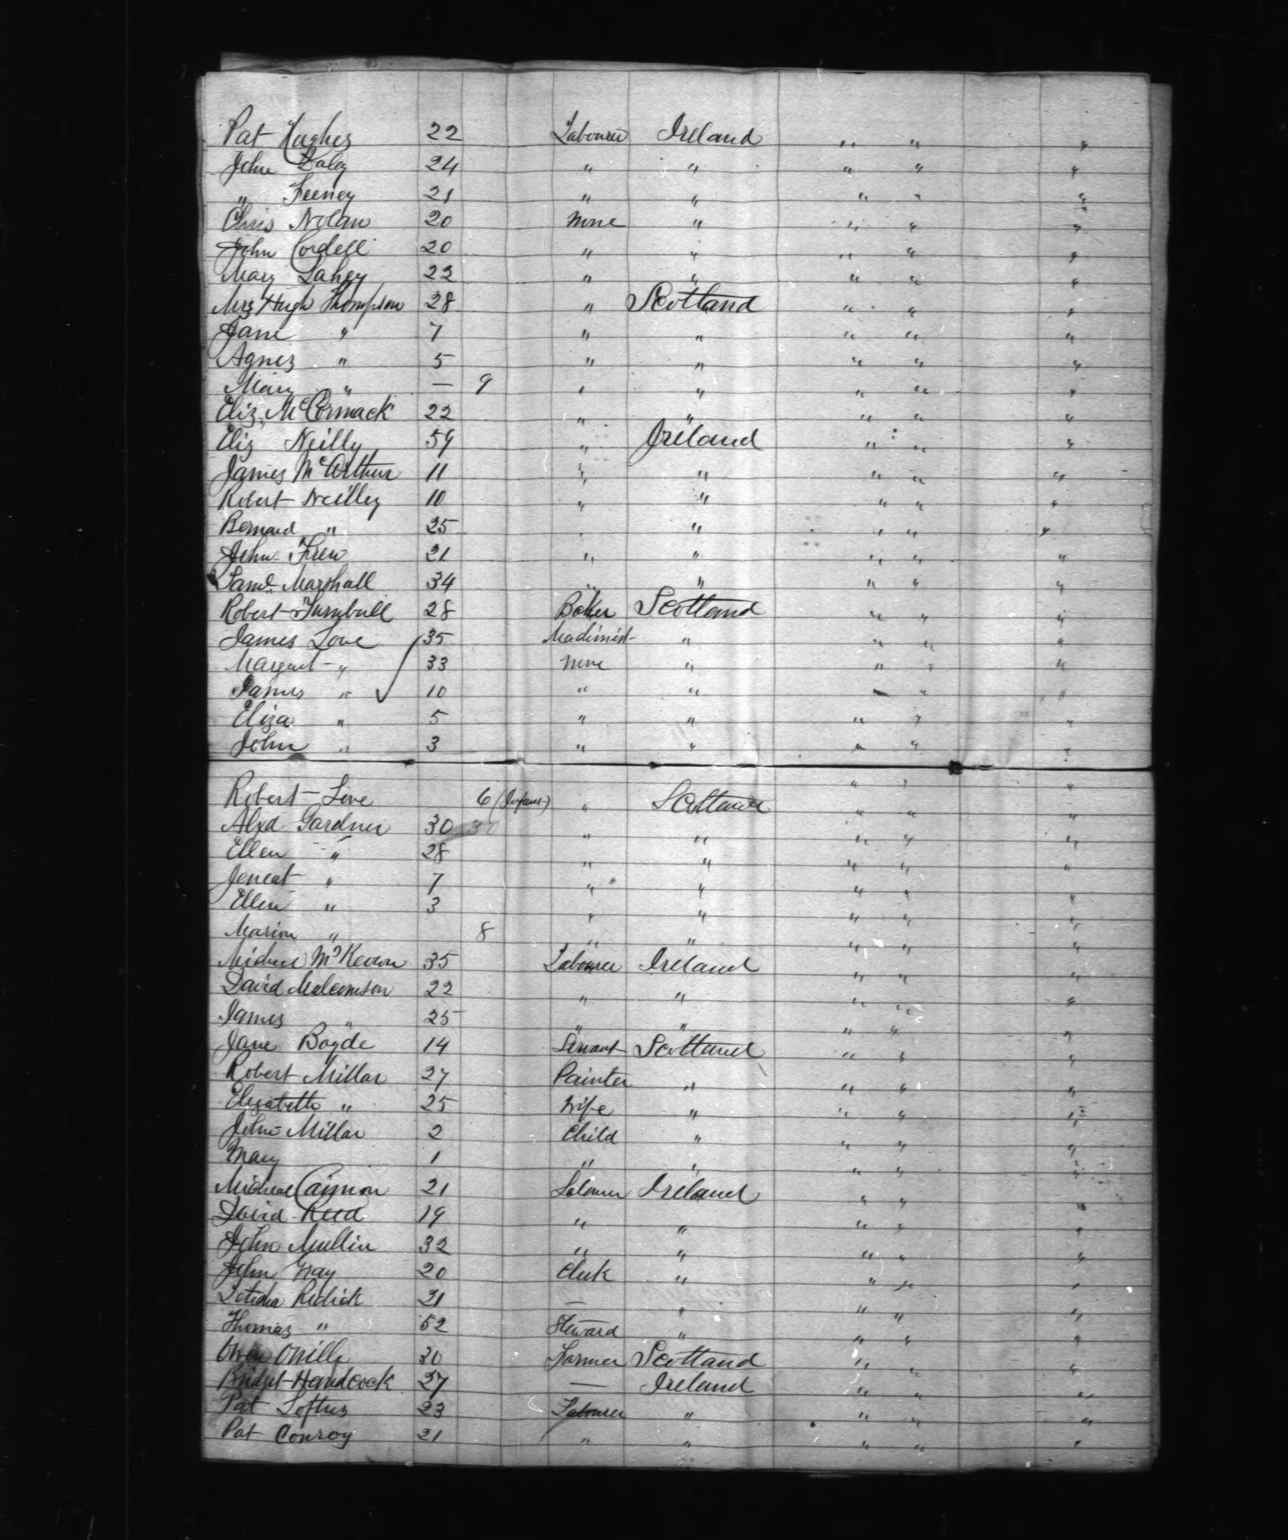 Pat Hughes 22 Labourer Ireland " " "
John Daly 24 " " " " "
" Feeney 21 " " " " "
Chris Nolan 20 None " " " "
John Cordell 20 " " " " "
Mary Lahey 22 " " " " "
Mrs Hugh Thompson 28 " Scotland " " "
Jane " 7 " " " " "
Agnes " 5 " " " " "
Mary " — 9 " " " " "
Eliz. McCormack 22 " " " " "
Eliz Neilly 59 " Ireland " " "
James McArthur 11 " " " " "
Robert Neilley 10 " " " " "
Bernard " 25 " " " " "
John Frew 21 " " " " "
Saml. Marshall 34 " " " " "
Robert Turnbull 28 Baker Scotland " " "
James Love 35 Machinist " " " "
Margaret " 33 none " " " "
James " 10 " " " " "
Eliza " 5 " " " " "
John " 3 " " " " "
Robert Love 6 (Infant) " Scotland " " "
Alxd Gardner 30 " " " " "
Ellen " 28 " " " " "
Jeneat " 7 " " " " "
Ellen " 3 " " " " "
Marion " 8 " " " " "
Michael McKeown 35 Labourer Ireland " " "
David Malcomson 22 " " " " "
James " 25 " " " " "
Jane Bogde 14 Servant Scotland " " "
Robert Millar 27 Painter " " " "
Elizabeth " 25 Wife " " " "
John Millar 2 Child " " " "
Mary 1 " " " " "
Michael Cannon 21 Labourer Ireland " " "
David Reed 19 " " " " "
John Mullin 32 " " " " "
John Gray 20 Clerk " " " "
Letitia Redick 21 — " " " "
Thomas " 52 Steward " " " "
Owen ONille 30 Farmer Scotland " " "
Bridget Handcock 27 — Ireland " " "
Pat Loftus 23 Labourer " " " "
Pat Conroy 21 " " " " "